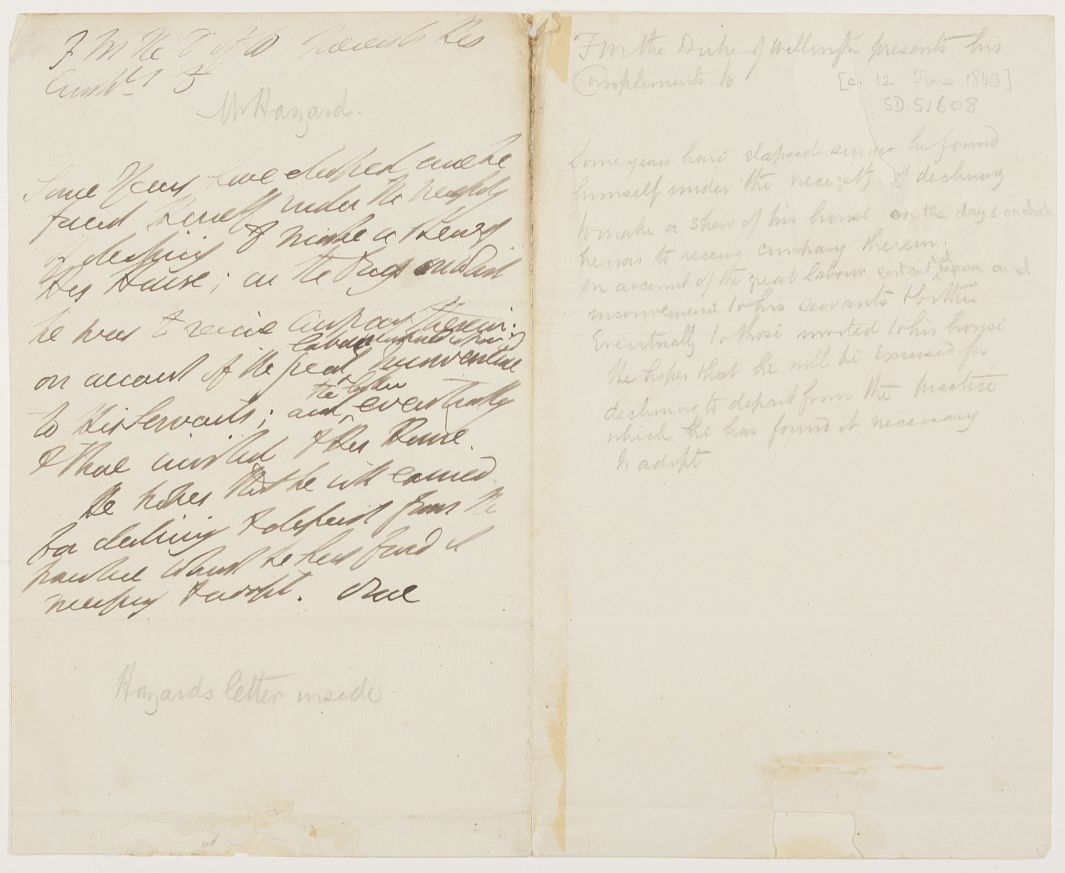 F M the D of W presents his
Compts to
Mr Hazard.
Some Years have elapsed since he
found himself under the necessity
of declining to make a Shew of
His House; on the Days on which
he was to receive company therein:
labour entailed upon and
on account of the great inconvenience
the latter
to His Servants; and, eventually
to those invited to His House.
He hopes that he will be excused
for declining to depart from the
practice which he has found it
necessary to adopt.
Hazards letter inside
F M the Duke of Wellington presents his
Compliments to
[c. 12 June 1843]
SD 51608
Some years have elapsed since he found
himself under the necessity of declining
to make a shew of his house on the days on which
he was to receive company therein.
on account of the great labour entailed upon and
inconvenience to his servants & to the
Eventually to those invited to his house
He hopes that he will be Excused for
declining to depart from the practice
which he has found it necessary
to adopt